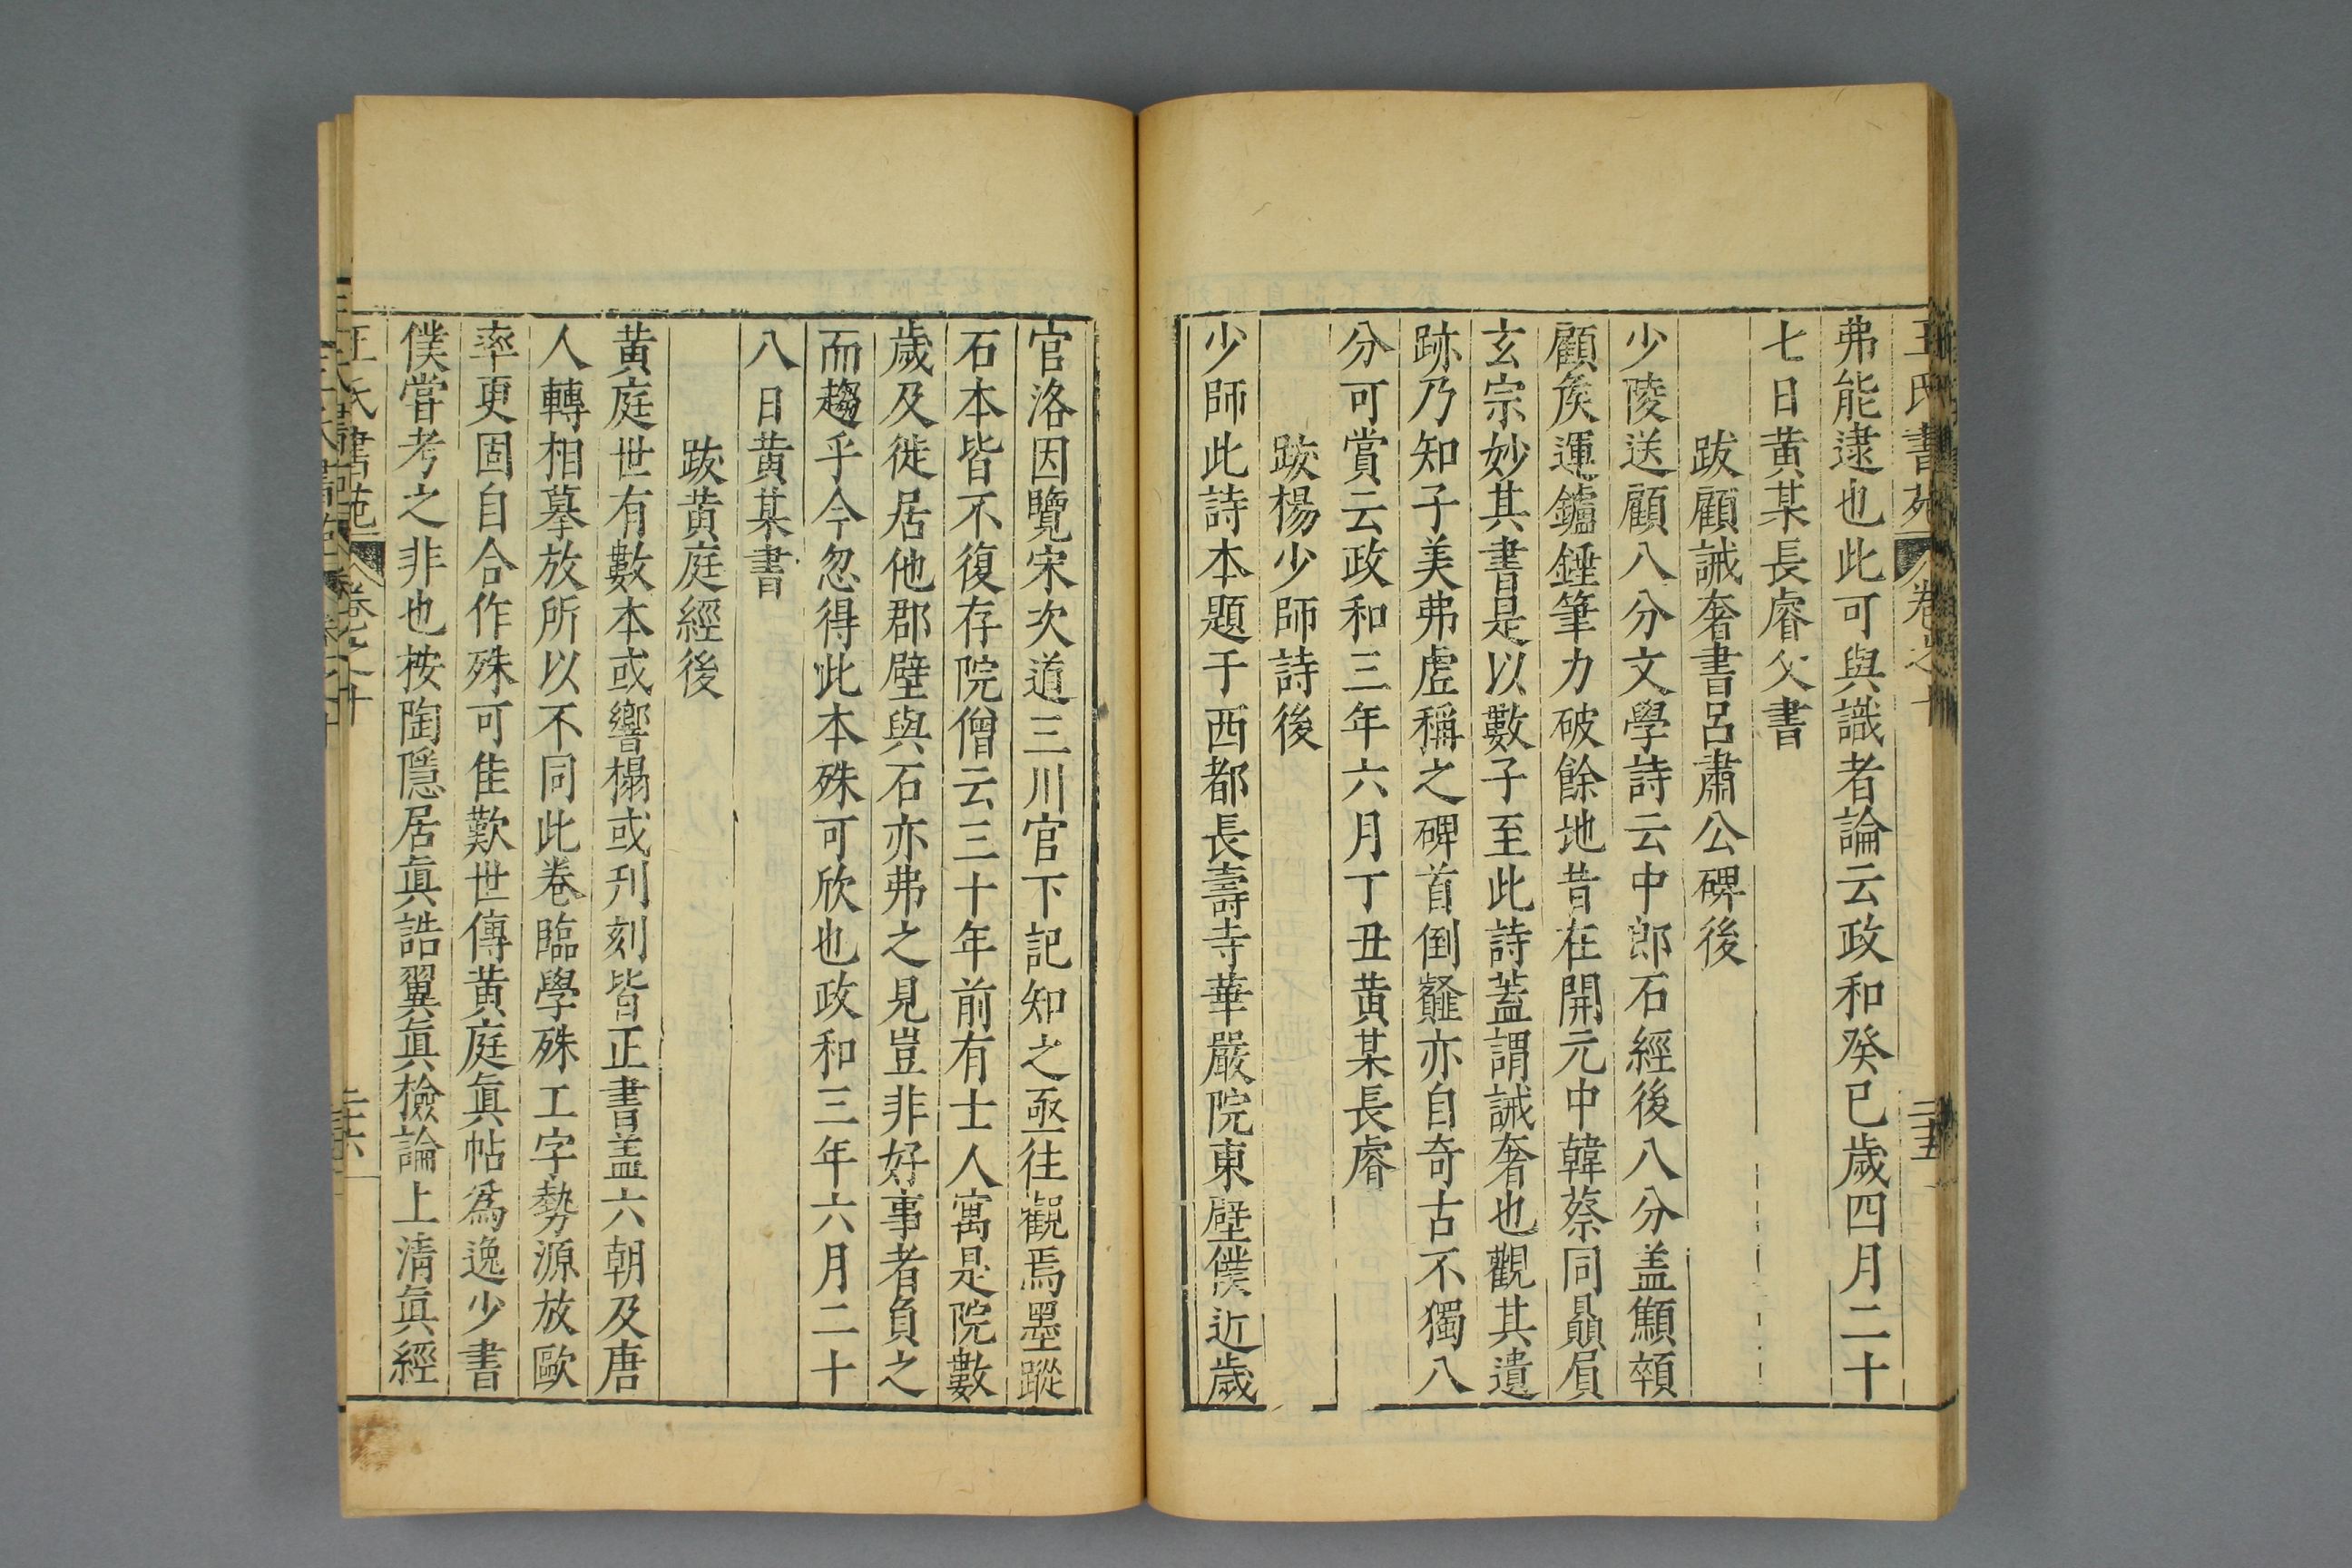 王氏書苑 卷之十 二十五
弗能逮也此可與識者論云政和癸巳歲四月二十
七日黄某長睿父書
跋顧誡奢書呂肅公碑後
少陵送顧八分文學詩云中郎石經後八分盖顦顇
顧矦運鑪錘筆力破餘地昔在開元中韓蔡同贔屓
玄宗妙其書是以數子至此詩蓋謂誡奢也觀其遺
跡乃知子美弗虛稱之碑首倒韰亦自奇古不獨八
分可賞云政和三年六月丁丑黄某長睿
跋楊少師詩後
少師此詩本題于西都長壽寺華嚴院東壁僕近歲
官洛因覽宋次道三川官下記知之亟往觀焉墨蹤
石本皆不復存院僧云三十年前有士人寓是院數
歲及徙居他郡壁與石亦弗之見豈非好事者負之
而趨乎今忽得此本殊可欣也政和三年六月二十
八日黄某書
跋黄庭經後
黄庭世有數本或響榻或刋刻皆正書盖六朝及唐
人轉相摹放所以不同此卷臨學殊工字勢源放歐
率更固自合作殊可隹歎世傳黄庭眞帖爲逸少書
僕嘗考之非也按陶隱居眞誥翼眞檢論上清眞經
王氏書苑 卷之十 二十六